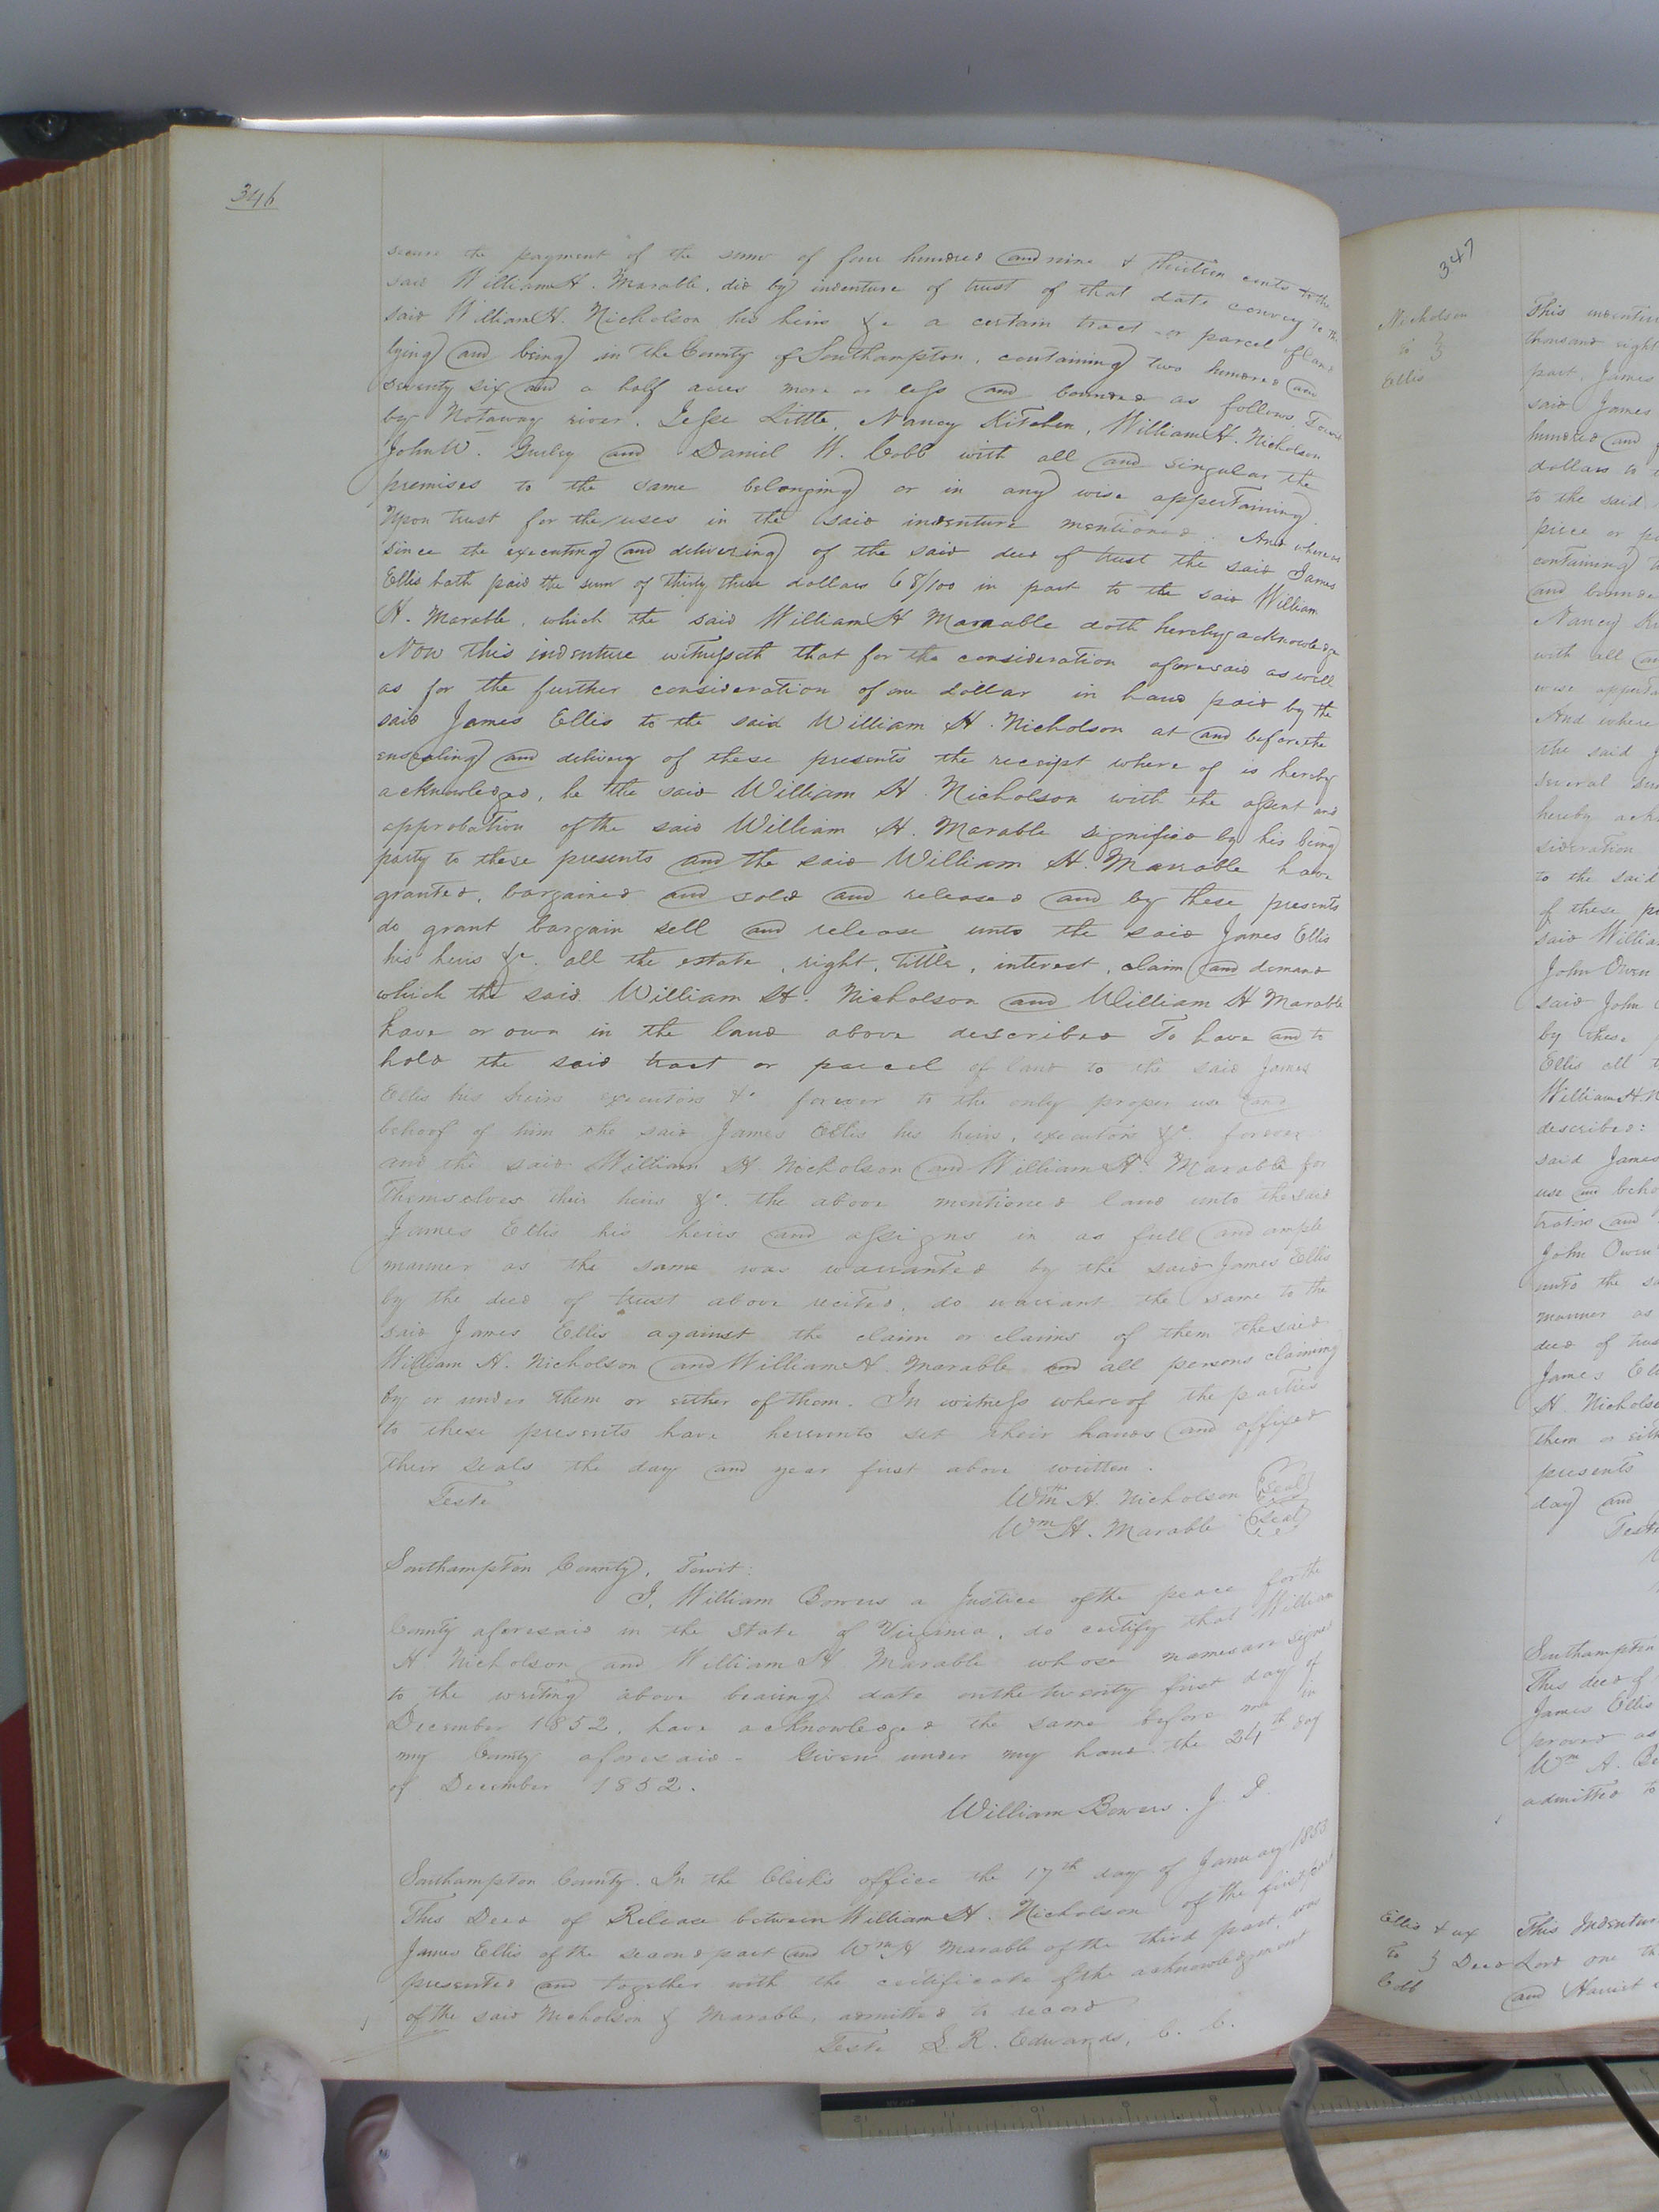 346
secure the payment of the sum of four hundred and nine & thirteen cents to the
said William H. Marable, did by indenture of trust of that date convey to the
said William H. Nicholson his heirs &c a certain tract or parcel of land
lying and being in the County of Southampton, containing two hundred and
seventy six and a half acres more or less and bounded as follows,
by Notaway river, Jesse Little, Nancy Kitchen, William H. Nicholson
John W. Gurley and Daniel W. Cobb with all and singular the
premises to the same belonging or in any wise appertaining.
Upon trust for the uses in the said indenture mentioned: And whereas
since the executing and delivering of the said deed of trust the said James
Ellis hath paid the sum of thirty three dollars 68/100 in part to the said William
H. Marable, which the said William H Marable doth hereby acknowledge
Now this indenture witnesseth that for the consideration aforesaid as well
as for the further consideration of one dollar in hand paid by the
said James Ellis to the said William H. Nicholson at and before the
ensealing and delivery of these presents the receipt where of is hereby
acknowledged, he the said William H. Nicholson with the assent and
approbation of the said William H. Marable signified by his being
party to these presents and the said William H. Marable have
granted, bargained and sold and released and by these presents
do grant bargain sell and release unto the said James Ellis
his heirs &c. all the estate, right, tittle, interest, claim and demand
which the said William H. Nicholson and William H Marable
have or own in the land above described To have and to
hold the said tract or parcel of land to the said James
Ellis his heirs executors &c forever to the only proper use and
behoof of him the said James Ellis his heirs, executors &c. forever
and the said William H. Nicholson and William H. Marable for
themselves their heirs &c. the above mentioned land unto the said
James Ellis his heirs and assigns in as full and ample
manner as the same was warranted by the said James Ellis
by the deed of trust above recited, do warrant the same to the
said James Ellis against the claim or claims of them the said
William H. Nicholson and William H. Marable and all persons claiming
by or under them or either of them. In witness whereof the parties
to these presents have hereunto set their hands and affixed
their seals the day and year first above written.
Teste
Wm H. Nicholson Seal
Wm H. Marable Seal
Southampton County, Towit:
I, William Bowers a Justice of the peace for the
County aforesaid in the State of Virginia, do certify that William
H Nicholson and William H Marable whose names are signed
to the writing above bearing date on the twenty first day of
December 1852, have acknowledged the same before me in
my County aforesaid. Given under my hand the 24th day
of December 1852.
William Bowers. J. P.
Southampton County. In the Clerk's office the 17th day of January 1853
This Deed of Release between William H. Nicholson of the first part
James Ellis of the second part and Wm H Marable of the third part, was
presented and together with the certificate of the acknowledgment
of the said Nicholson & Marable, admitted to record
Teste L. R. Edwards, C. C.
347
Nicholson
to
Ellis
This
thousand
part, James
said James
hundred and
dollars to
to the said
piece or
containing
and
Nancy
with all
wise
And where
the said
several
hereby
sideration
to the said
of these
said
John Owen
said John
by these
Ellis all
William H.
described:
said James
use and
and
John Owen
unto the
manner as
deed of
James
H.
them or
presents
day and
Southampton
This deed
James Ellis
as
Wm
admitted to
Ellis & ux
to Deed
Cobb
This
Lord one
and Harriet